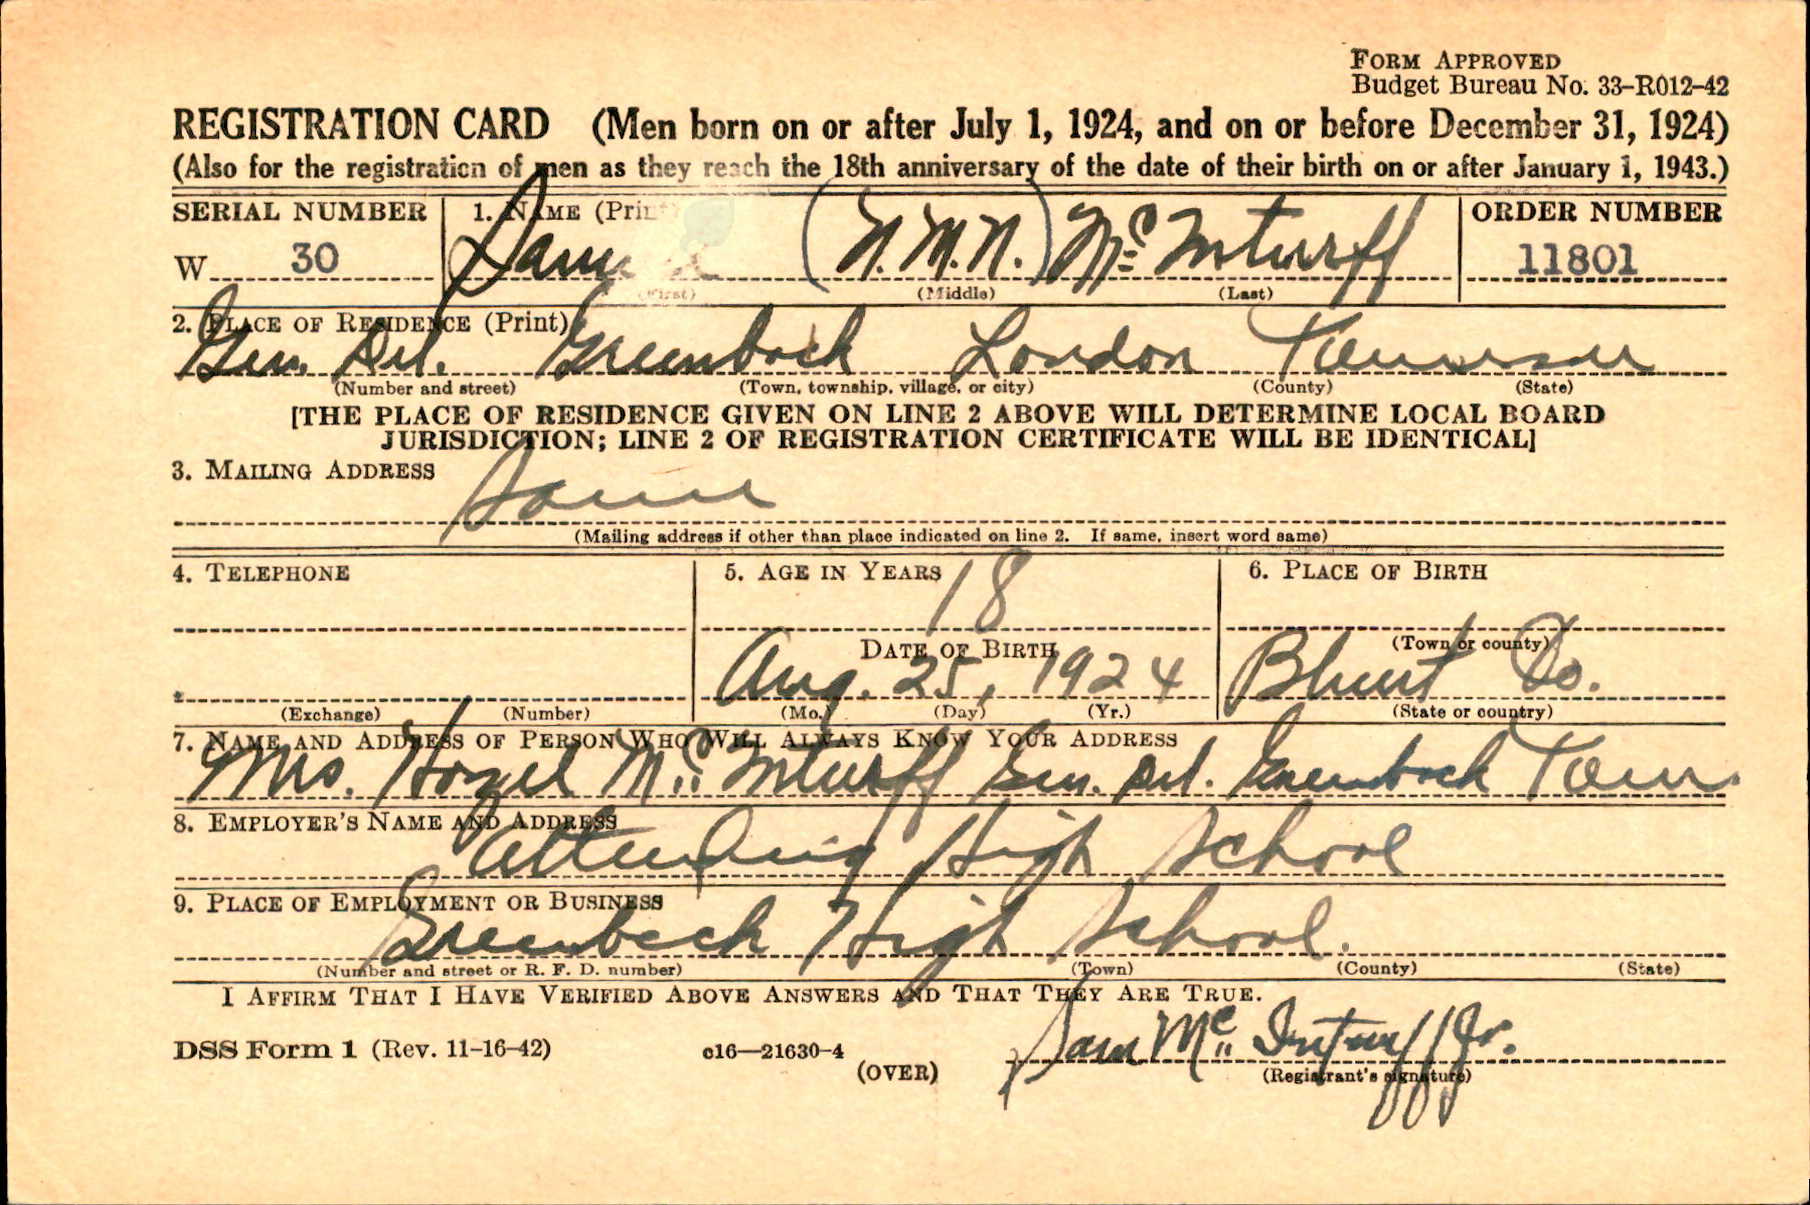 FORM APPROVED
Budget Bureau No. 33-R012-42
REGISTRATION CARD (Men born on or after July 1, 1924, and on or before December 31, 1924)
(Also for the registration of men as they reach the 18th anniversary of the date of their birth on or after January 1, 1943.)
SERIAL NUMBER 1. NAME (Print) ORDER NUMBER
W 30 (N.M.N.) McInturff 11801
(First) (Middle) (Last)
2. PLACE OF RESIDENCE (Print)
Gen. Del. Greenback Loudon Tennessee
(Number and street) (Town, township, village, or city) (County) (State)
[THE PLACE OF RESIDENCE GIVEN ON LINE 2 ABOVE WILL DETERMINE LOCAL BOARD
JURISDICTION; LINE 2 OF REGISTRATION CERTIFICATE WILL BE IDENTICAL]
3. MAILING ADDRESS
Same
(Mailing address if other than place indicated on line 2. If same, insert word same)
4. TELEPHONE 5. AGE IN YEARS 6. PLACE OF BIRTH
18
DATE OF BIRTH (Town or county)
Aug. 25, 1924 Blount Co.
(Exchange) (Number) (Mo.) (Day) (Yr.) (State or country)
7. NAME AND ADDRESS OF PERSON WHO WILL ALWAYS KNOW YOUR ADDRESS
Mrs. Hazel McInturff Gen. Del. Greenback Tenn.
8. EMPLOYER'S NAME AND ADDRESS
Attending High School
9. PLACE OF EMPLOYMENT OR BUSINESS
Greenback High School.
(Number and street or R. F. D. number) (Town) (County) (State)
I AFFIRM THAT I HAVE VERIFIED ABOVE ANSWERS AND THAT THEY ARE TRUE.
Sam McInturff Jr.
DSS Form 1 (Rev. 11-16-42) c16—21630-4
(OVER) (Registrant's signature)